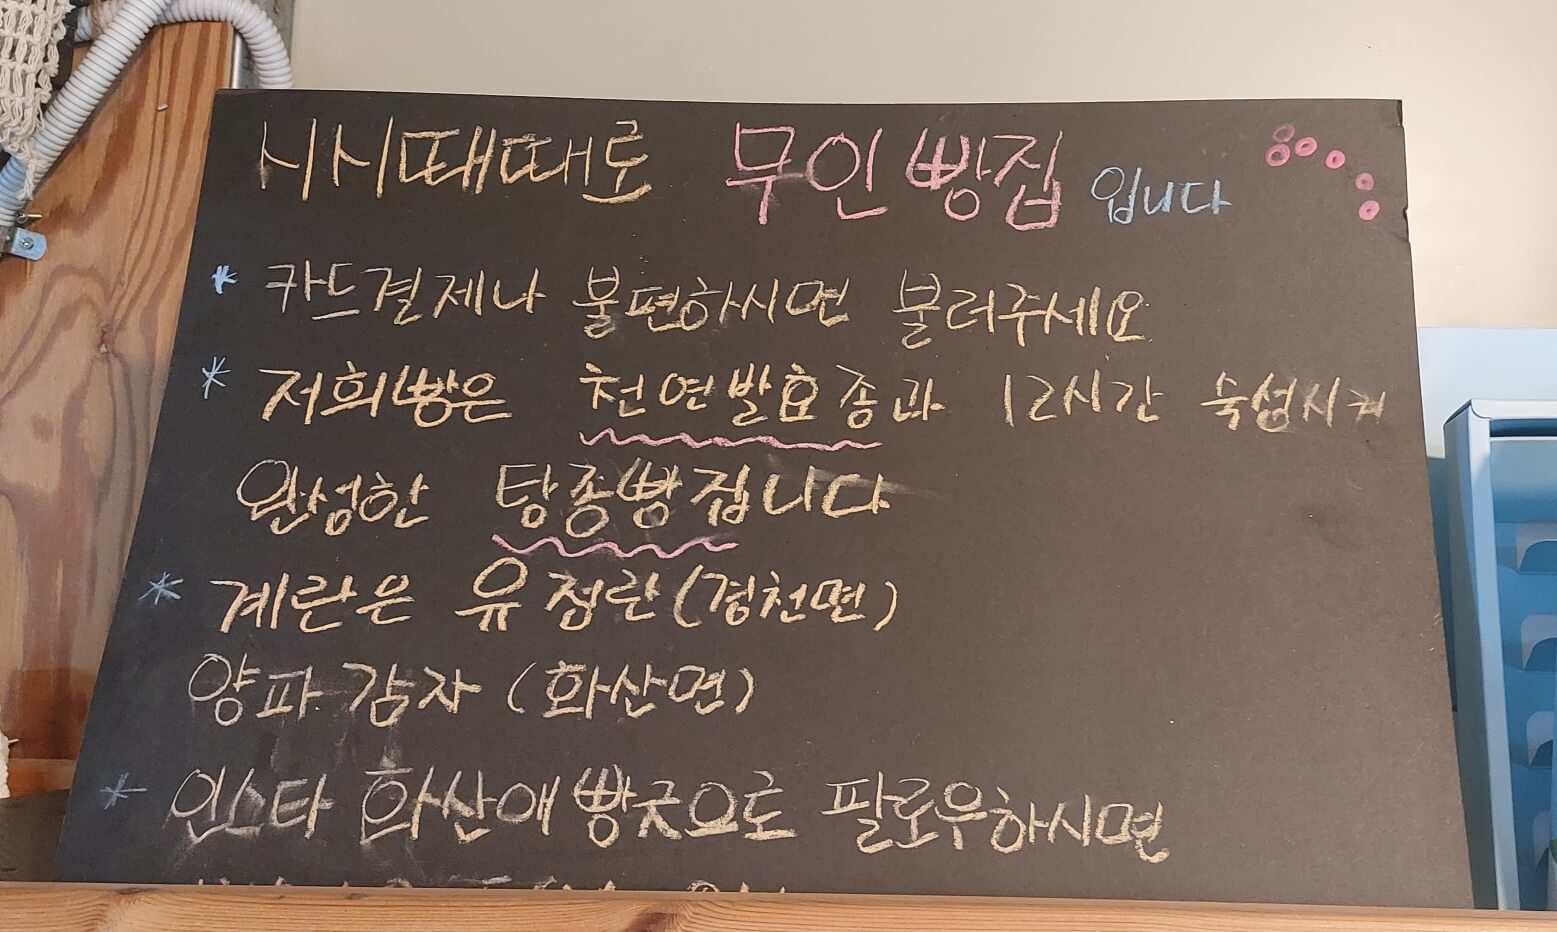 시시때때로 무인빵집 입니다
* 카드결제나 불편하시면 불러주세요
* 저희빵은 천연발효종과 12시간 숙성시켜
완성한 탕종빵집니다
* 계란은 유정란(경천면)
양파 감자 (화산면)
* 인스타 화산애빵긋으로 팔로우하시면